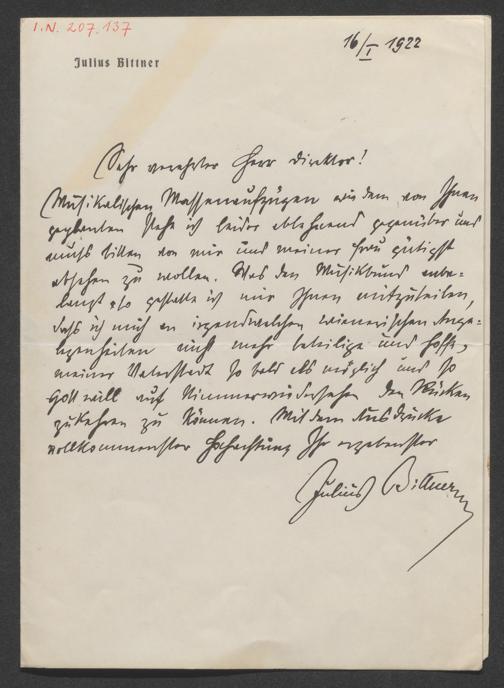 I.N. 207.137
16/I 1922
Julius Bittner
Sehr verehrter Herr Direktor!
Musikalischen Massenaufzügen wie dem von Ihnen
geplanten stehe ich leider ablehnend gegenüber und
muß bitten von mir und meiner Frau gütigst
absehen zu wollen. Was den Musikbund anbe-
langt so gestatte ich mir Ihnen mitzuteilen,
daß ich mich an irgendwelchen wienerischen Ange-
legenheiten nicht mehr beteilige und hoffe,
meiner Vaterstadt so bald als möglich und so
Gott will auf Nimmerwiedersehen den Rücken
zukehren zu können. Mit dem Ausdrucke
vollkommenster Hochachtung Ihr ergebenster
Julius Bittner